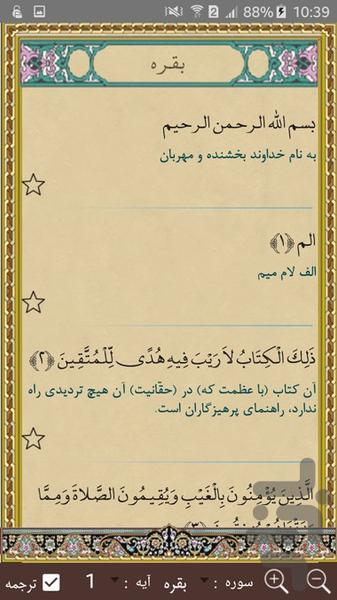 88% 10:39
بقره
بسم الله الرحمن الرحیم
به نام خداوند بخشنده و مهربان
الم ﴿۱﴾
الف لام میم
ذَلِكَ الْكِتَابُ لاَ رَيْبَ فِيهِ هُدًى لِّلْمُتَّقِينَ ﴿۲﴾
آن کتاب (با عظمت که) در (حقّانیت) آن هیچ تردیدی راه
ندارد، راهنمای پرهیزگاران است.
الَّذِينَ يُؤْمِنُونَ بِالْغَيْبِ وَيُقِيمُونَ الصَّلاةَ وَمِمَّا
سوره : بقره آیه : 1 ترجمه